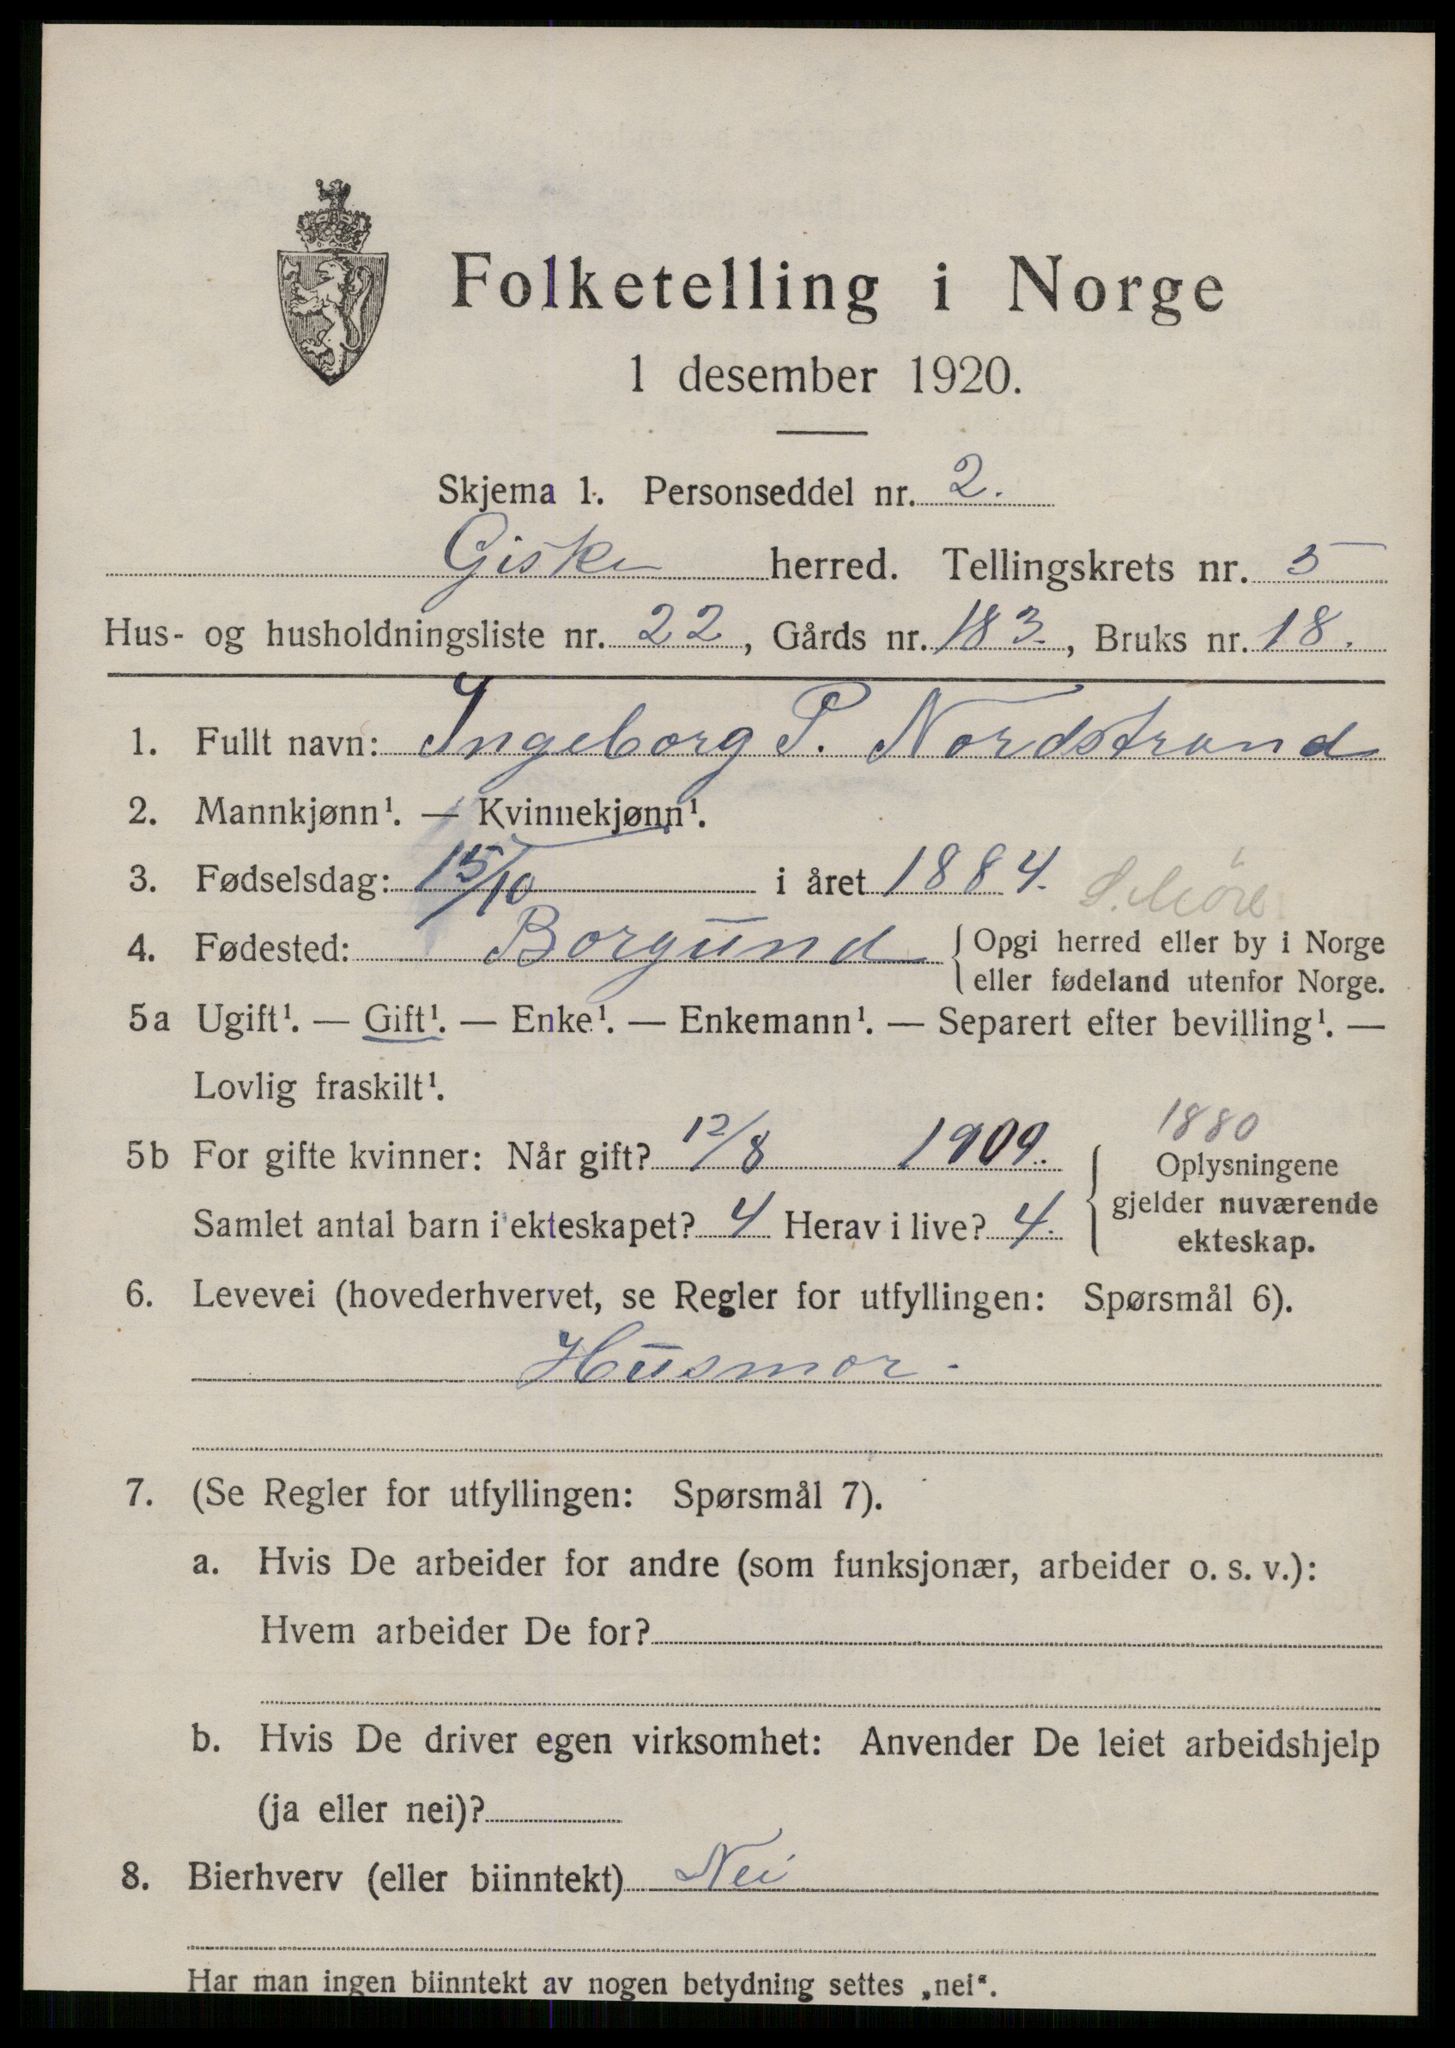 Folketelling i Norge
1 desember 1920.
Skjema 1. Personseddel nr. 2.
Giske herred. Tellingskrets nr. 5
Hus- og husholdningsliste nr. 22, Gårds nr. 183., Bruks nr. 18.
1. Fullt navn: Ingeborg P. Nordstrand
2. Mannkjønn¹. — Kvinnekjønn¹.
3. Fødselsdag: 15/10 i året 1884. S. Møre
4. Fødested: Borgund { Opgi herred eller by i Norge
eller fødeland utenfor Norge.
5a Ugift¹. — Gift¹. — Enke¹. — Enkemann¹. — Separert efter bevilling¹. —
Lovlig fraskilt¹.
1880
5b For gifte kvinner: Når gift? 12/8 1909. { Oplysningene
gjelder nuværende
ekteskap.
Samlet antal barn i ekteskapet? 4 Herav i live? 4.
6. Levevei (hovederhvervet, se Regler for utfyllingen: Spørsmål 6).
Husmor.
7. (Se Regler for utfyllingen: Spørsmål 7).
a. Hvis De arbeider for andre (som funksjonær, arbeider o. s. v.):
Hvem arbeider De for?
b. Hvis De driver egen virksomhet: Anvender De leiet arbeidshjelp
(ja eller nei)?
8. Bierhverv (eller biinntekt) Nei
Har man ingen biinntekt av nogen betydning settes „nei“.